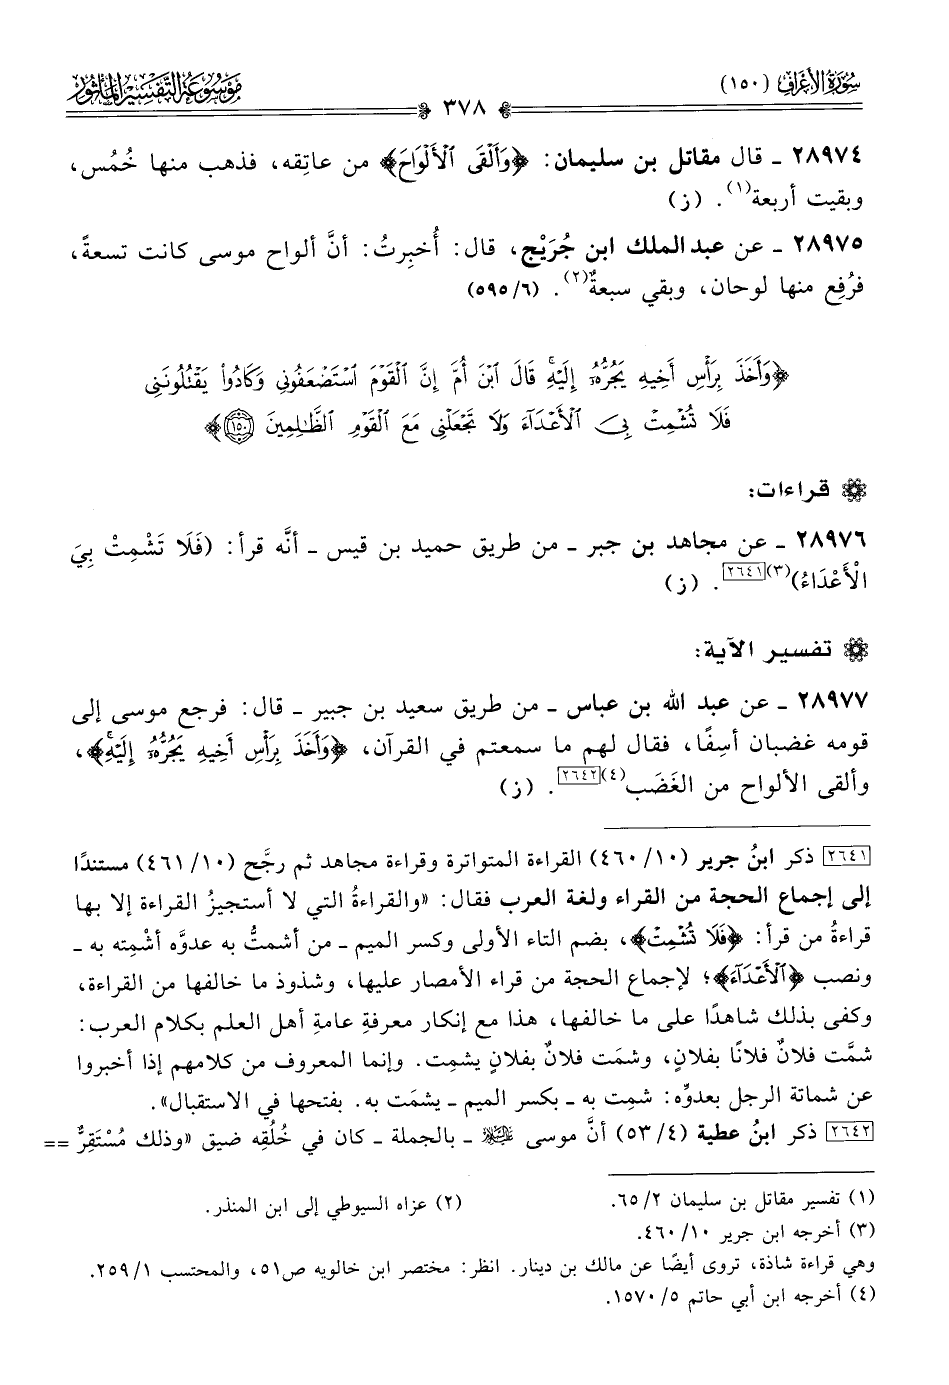 سُورَةُ الأَعْرَافِ (١٥٠)
٣٧٨
مَوْسُوعَة التَّفْسِيْرِ المَأْثُور
٢٨٩٧٤ ـ قال مقاتل بن سليمان: ﴿وَأَلْقَى ٱلْأَلْوَاحَ﴾ من عاتِقه، فذهب منها خُمُس،
وبقيت أربعة(١). (ز)
٢٨٩٧٥ ـ عن عبد الملك ابن جُرَيْج، قال: أُخبِرتُ: أنَّ ألواح موسى كانت تسعةً،
فرُفِع منها لوحان، وبقي سبعةٌ(٢). (٦/ ٥٩٥)
﴿وَأَخَذَ بِرَأْسِ أَخِيهِ يَجُرُّهُۥٓ إِلَيْهِۚ قَالَ ٱبْنَ أُمَّ إِنَّ ٱلْقَوْمَ ٱسْتَضْعَفُونِى وَكَادُواْ يَقْتُلُونَنِى
فَلَا تُشْمِتْ بِىَ ٱلْأَعْدَآءَ وَلَا تَجْعَلْنِى مَعَ ٱلْقَوْمِ ٱلظَّٰلِمِينَ ١٥٠﴾
قراءات:
٢٨٩٧٦ ـ عن مجاهد بن جبر ـ من طريق حميد بن قيس ـ أنَّه قرأ: (فَلَا تَشْمِتْ بِيَ
الْأَعْدَاءُ)(٣)[٢٦٤١]. (ز)
تفسير الآية:
٢٨٩٧٧ ـ عن عبد الله بن عباس ـ من طريق سعيد بن جبير ـ قال: فرجع موسى إلى
قومه غضبان أسِفًا، فقال لهم ما سمعتم في القرآن، ﴿وَأَخَذَ بِرَأْسِ أَخِيهِ يَجُرُّهُۥٓ إِلَيْهِ﴾،
وألقى الألواح من الغَضَب(٤)[٢٦٤٢]. (ز)
[٢٦٤١] ذكر ابنُ جرير (١٠/ ٤٦٠) القراءة المتواترة وقراءة مجاهد ثم رجَّح (١٠/ ٤٦١) مستندًا
إلى إجماع الحجة من القراء ولغة العرب فقال: «والقراءةُ التي لا أستجيزُ القراءة إلا بها
قراءةُ من قرأ: ﴿فَلَا تُشْمِتْ﴾، بضم التاء الأولى وكسر الميم ـ من أشمتُّ به عدوَّه أشْمِته به ـ
ونصب ﴿ٱلْأَعْدَآءَ﴾؛ لإجماع الحجة من قراء الأمصار عليها، وشذوذ ما خالفها من القراءة،
وكفى بذلك شاهدًا على ما خالفها، هذا مع إنكار معرفةِ عامةِ أهل العلم بكلام العرب:
شمَّت فلانٌ فلانًا بفلانٍ، وشمَت فلانٌ بفلانٍ يشمِت. وإنما المعروف من كلامهم إذا أخبروا
عن شماتة الرجل بعدوِّه: شمِت به ـ بكسر الميم ـ يشمَت به. بفتحها في الاستقبال».
[٢٦٤٢] ذكر ابنُ عطية (٤/ ٥٣) أنَّ موسى ـ بالجملة ـ كان في خُلُقِه ضيق «وذلك مُسْتَقِرٌّ ==
(١) تفسير مقاتل بن سليمان ٢/ ٦٥.
(٢) عزاه السيوطي إلى ابن المنذر.
(٣) أخرجه ابن جرير ١٠/ ٤٦٠.
وهي قراءة شاذة، تروى أيضًا عن مالك بن دينار. انظر: مختصر ابن خالويه ص٥١، والمحتسب ١/ ٢٥٩.
(٤) أخرجه ابن أبي حاتم ٥/ ١٥٧٠.